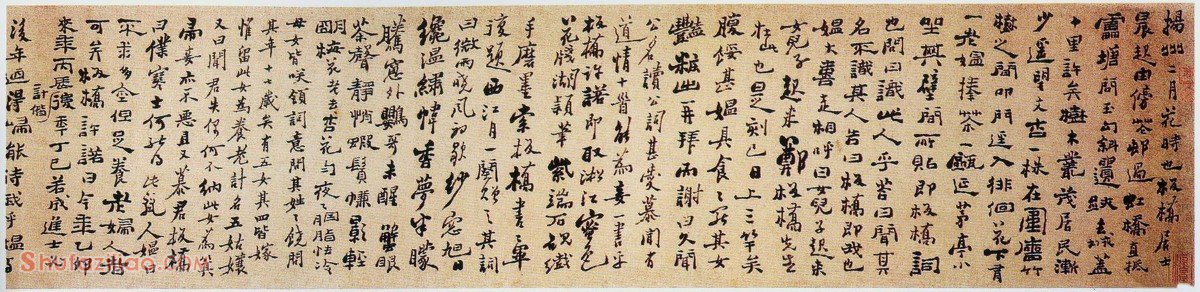 揚州二月花時也板橋居士
晨起由傍花邨過虹橋直抵
雷塘問玉勾斜遺跡去城蓋
十里許矣樹木叢茂居民漸
少遙望文杏一株在圍牆竹
樹之間叩門逕入徘徊花下有
一老媼捧茶一甌延茅亭小
坐其壁間所貼即板橋詞
也問曰識此人乎答曰聞其
名不識其人告曰板橋即我也
媼大喜走相呼曰女兒子起來
女兒子起來鄭板橋先生
在此也是刻已日上三竿矣
腹餒甚媼具食食罷其女
豔粧出再拜而謝曰久聞
公名讀公詞甚愛慕聞有
道情十首能為妾一書乎
板橋許諾即取淞江蜜色
花牋湖穎筆紫端石硯纖
手磨墨索板橋書畢
復題西江月一闋贈之其詞
曰微雨曉風初歇紗窗旭日
纔溫繡幃香夢半矇
騰窗外鸚哥未醒蟹眼
茶聲靜悄蝦鬚簾影輕
明梅花老去杏花勻夜夜胭脂怯冷
母女皆咲領詞意問其姓姓饒問
其年十七歲矣有五女其四皆嫁
惟留此女為養老計名五姑孃
又曰聞君失偶何不納此女為箕
帚妾亦不惡且又慕君板橋
曰僕寒士何能得此麗人媼曰
不求多金但足養老婦人者
可矣板橋許諾曰今年乙卯
來年丙辰計偕後年丁巳若成進士必
後年迺得歸能待我乎媼與